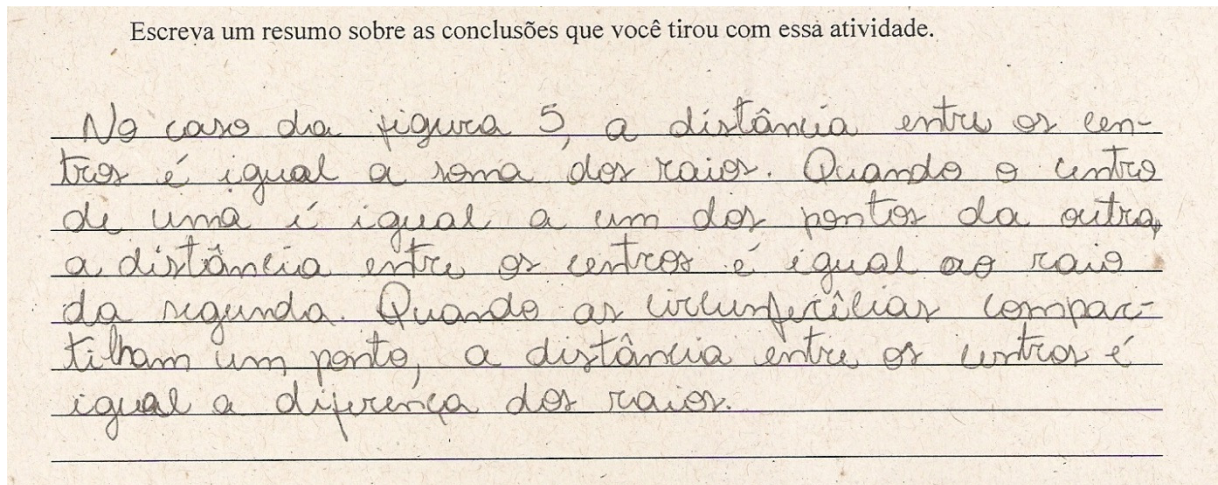 Escreva um resumo sobre as conclusões que você tirou com essa atividade.
No caso da figura 5, a distância entre os cen-
tros é igual a soma dos raios. Quando o centro
de uma é igual a um dos pontos da outra,
a distância entre os centros é igual ao raio
da segunda. Quando as circunferêcias compar-
tilham um ponto, a distância entre os centros é
igual a diferença dos raios.